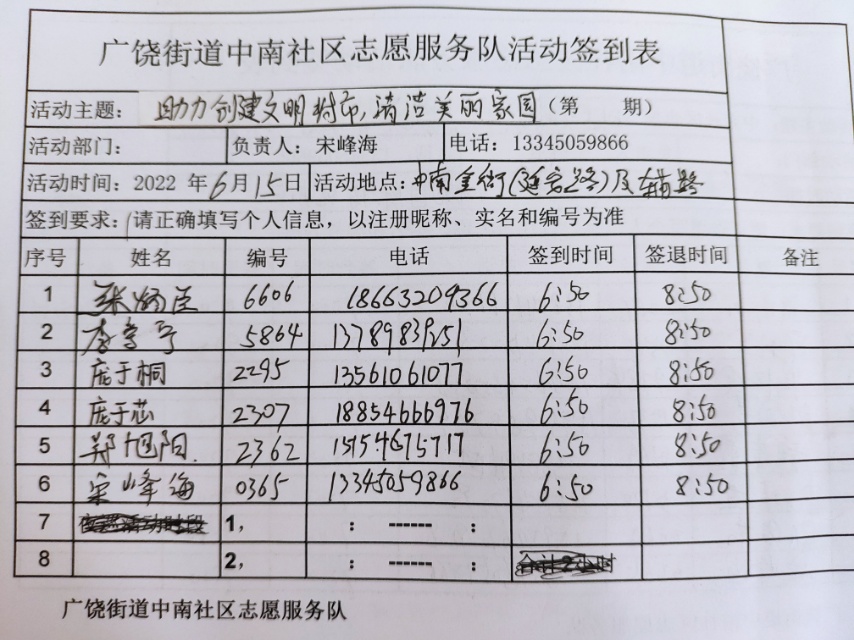 广饶街道中南社区志愿服务队活动签到表
活动主题： 助力创建文明城市，清洁美丽家园（第 期）
活动部门： 负责人：宋峰海 电话：13345059866
活动时间：2022 年6月15日 活动地点：中南金街(延安路)及辅路
签到要求：请正确填写个人信息，以注册昵称、实名和编号为准
序号 姓名 编号 电话 签到时间 签退时间 备注
1 6606 18663209366 6:50 8:50
2 5864 13789839251 6:50 8:50
3 庞于桐 2295 13561061077 6:50 8:50
4 庞于芯 2307 18854666976 6:50 8:50
5 郑旭阳 2362 15154675717 6:50 8:50
6 宋峰海 0365 13345059866 6:50 8:50
7 1， : ------ :
8 2， : ------ :
广饶街道中南社区志愿服务队